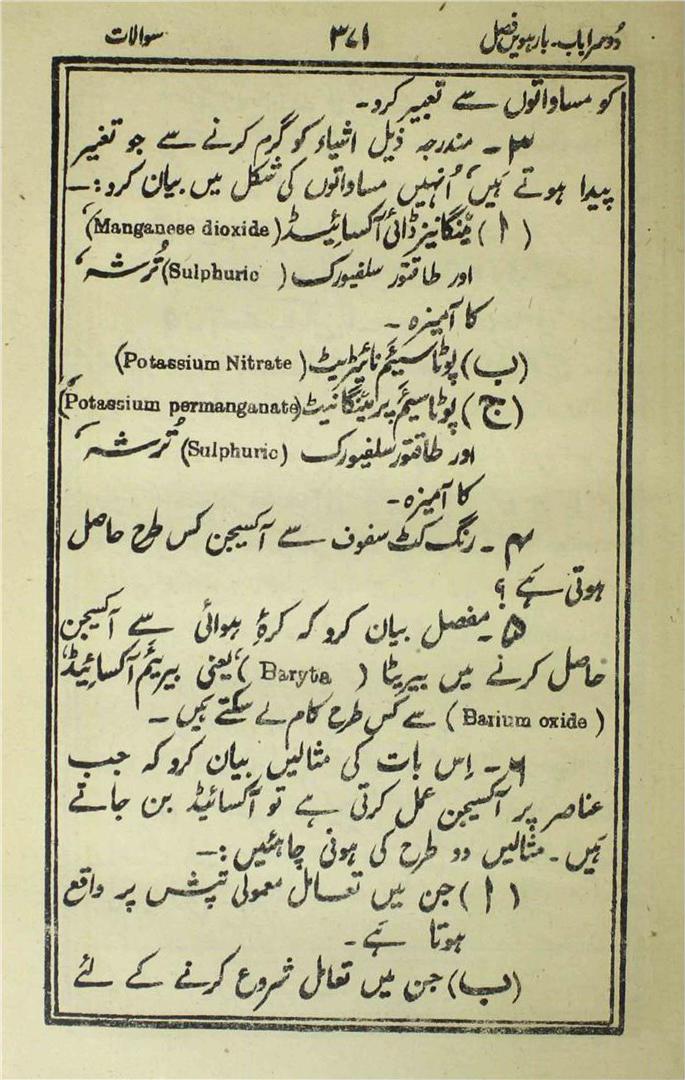 دُوسرا باب۔ بارہویں فصل ۳۷۱ سوالات
کو مساواتوں سے تعبیر کرو۔
۳۔ مندرجہ ذیل اشیاء کو گرم کرنے سے جو تغیر
پیدا ہوتے ہیں، اُنہیں مساواتوں کی شکل میں بیان کرو:۔
(ا) مینگانیز ڈائی آکسائیڈ (Manganese dioxide)،
اور طاقتور سلفیورک (Sulphuric) تُرشہ،
کا آمیزہ۔
(ب) پوٹاسیئم نائیٹریٹ (Potassium Nitrate)
(ج) پوٹاسیئم پرمینگانیٹ (Potassium permanganate)،
اور طاقتور سلفیورک (Sulphuric) تُرشہ،
کا آمیزہ۔
۴۔ رنگ کٹ سفوف سے آکسیجن کس طرح حاصل
ہوتی ہے؟
۵۔ مفصل بیان کرو کہ کرۂ ہوائی سے آکسیجن
حاصل کرنے میں بیریٹا (Baryta)، یعنی بیریئم آکسائیڈ،
(Barium oxide) سے کس طرح کام لے سکتے ہیں۔
۶۔ اِس بات کی مثالیں بیان کرو کہ جب
عناصر پر آکسیجن عمل کرتی ہے تو آکسائیڈ بن جاتے
ہیں۔ مثالیں دو طرح کی ہونی چاہئیں:۔
(ا) جن میں تعامل معمولی تپش پر واقع
ہوتا ہے۔
(ب) جن میں تعامل شروع کرنے کے لئے